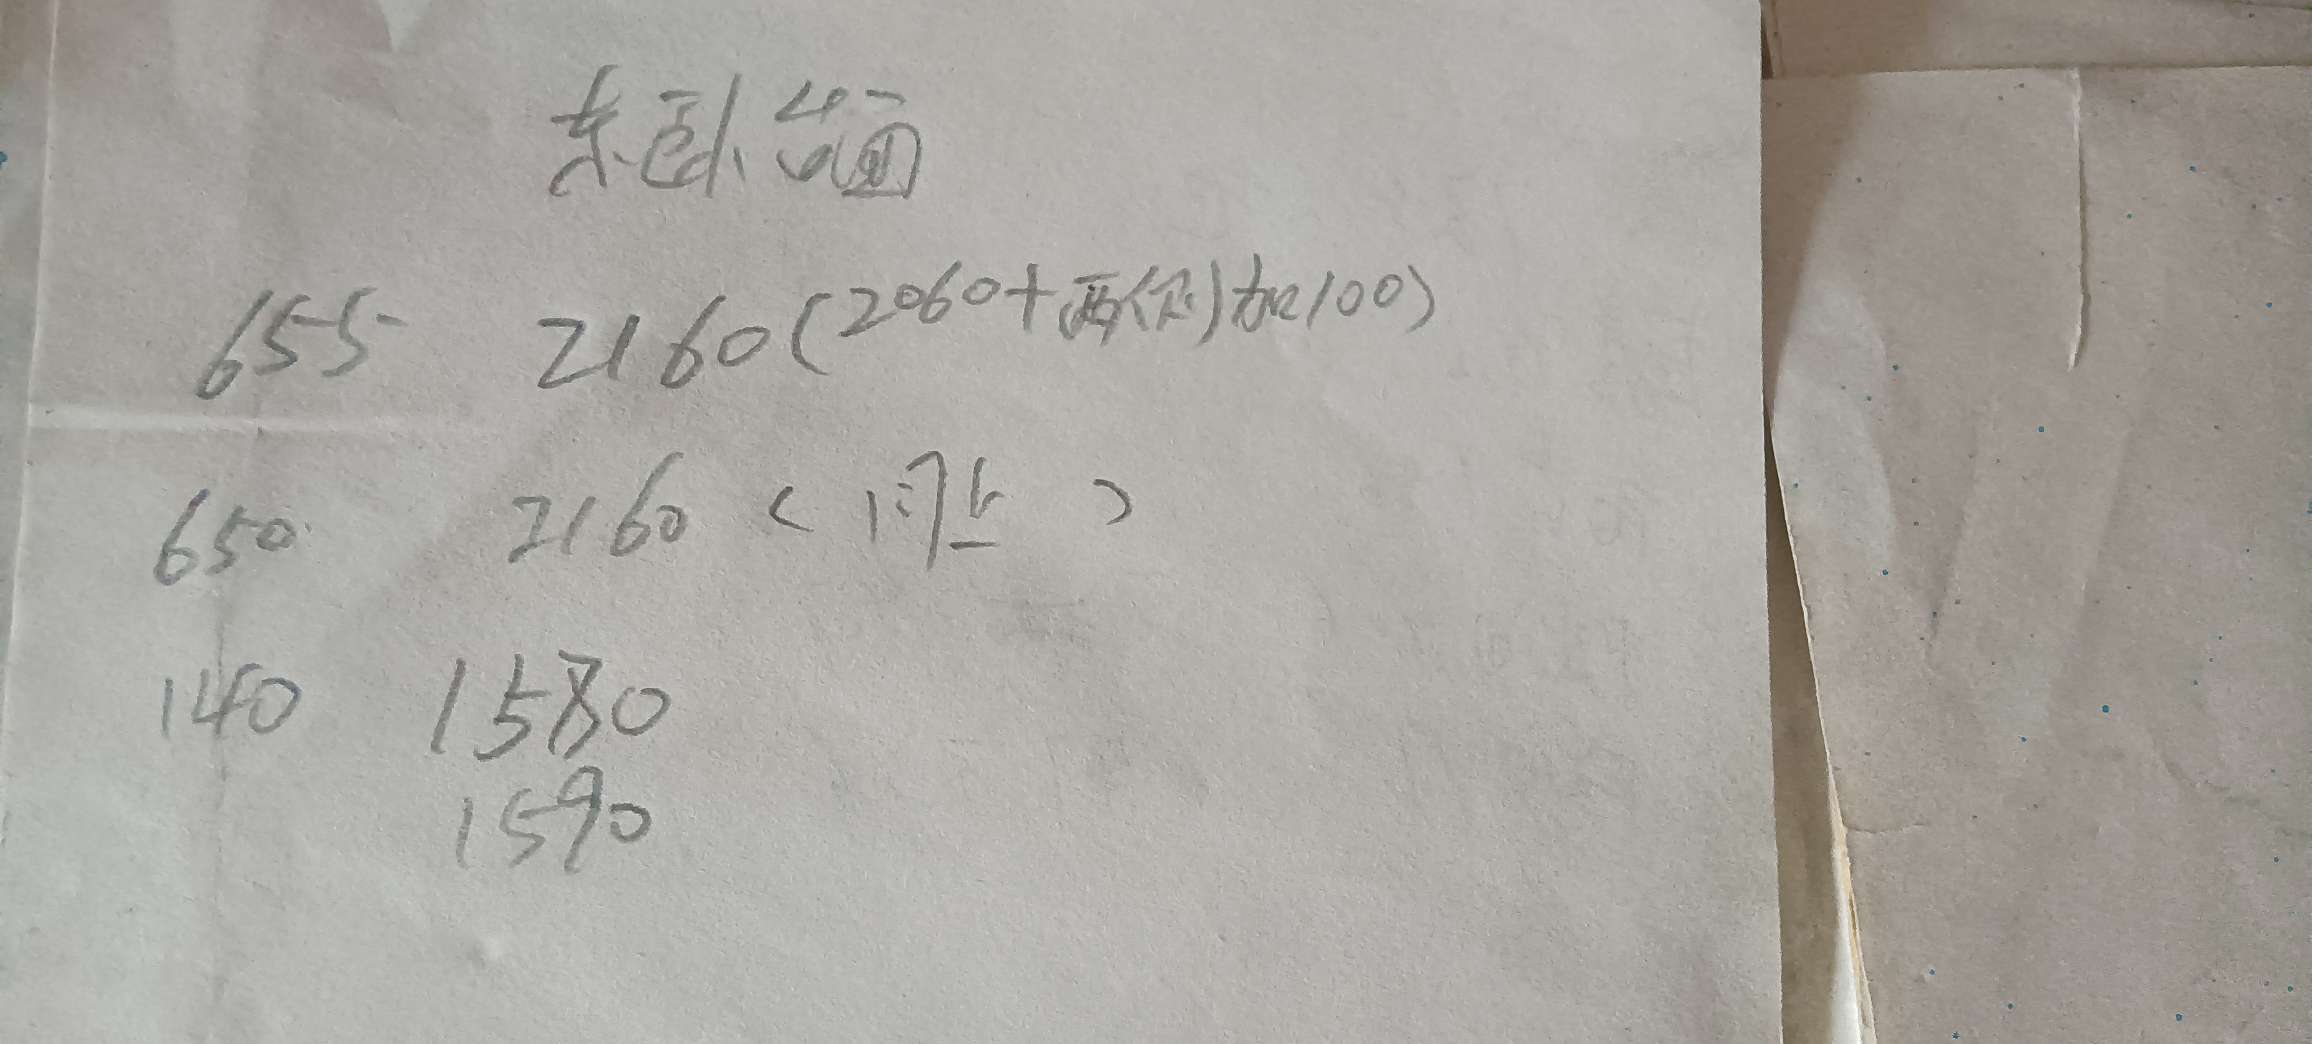 东卧台面
655 2160(2060+两侧加100)
650 2160(同上)
140 1580
1590